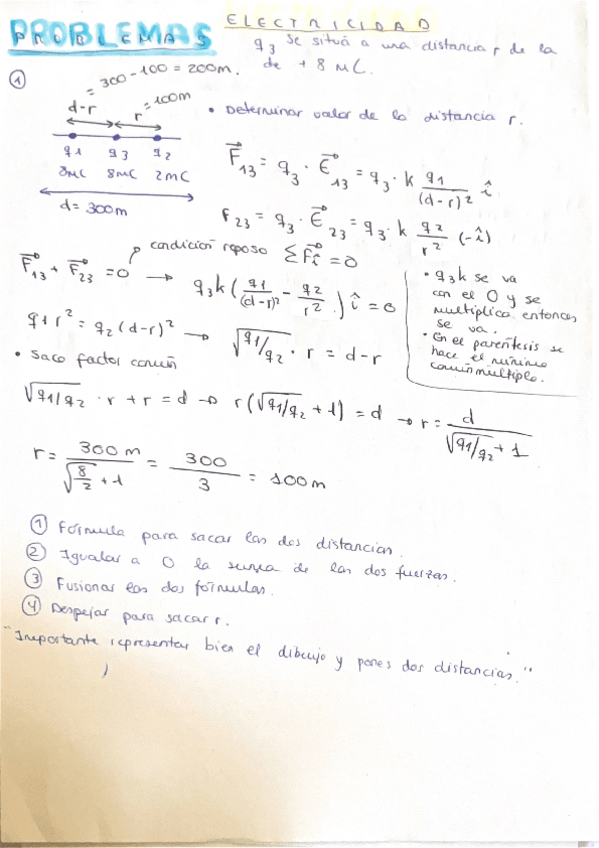 PROBLEMAS ELECTRICIDAD
q3 se situá a una distancia r de la
de + 8 μC.
① = 300 - 100 = 200m.
d-r r = 100m
• Determinar valor de la distancia r.
q1 q3 q2
8μC 8μC 2μC
d = 300m
F⃗13 = q3 · E⃗13 = q3 · k q1/(d-r)² î
F23 = q3 · E⃗23 = q3 · k q2/r² (-î)
condición reposo ΣF⃗i = 0
F⃗13 + F⃗23 = 0 → q3k (q1/(d-r)² - q2/r²) î = 0
• q3k se va
con el 0 y se
multiplica entonces
se va.
• En el paréntesis se
hace el mínimo
común múltiplo.
q1r² = q2(d-r)² → √q1/q2 · r = d-r
• Saco factor común
√q1/q2 · r + r = d → r(√q1/q2 + 1) = d → r = d/(√q1/q2 + 1)
r = 300 m/(√8/2 + 1) = 300/3 = 100m
① Fórmula para sacar las dos distancias.
② Igualar a 0 la suma de las dos fuerzas.
③ Fusionar las dos fórmulas.
④ Despejar para sacar r.
"Importante representar bien el dibujo y pones dos distancias."